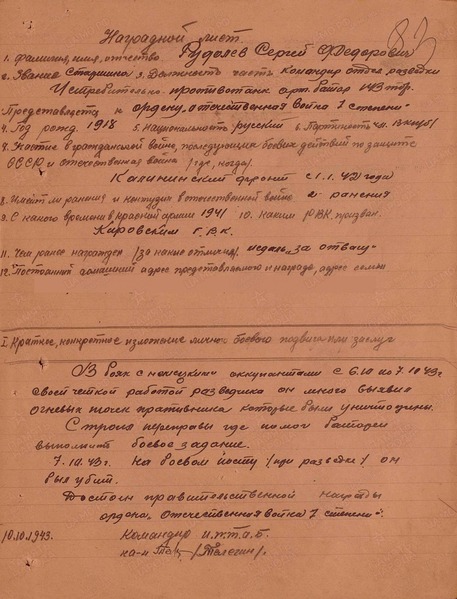 83
Наградной лист.
1. Фамилия, имя, отчество Гудалев Сергей Федорович
2. Звание Старшина 3. Должность часть Командир отдел. разведки
Истребительно противотанк арт. бат-на 143 стр.
Представляется к ордену „Отечественная Война 1 степени“
4. Год рожд. 1918 5. Национальность русский 6. Партийность чл. ВКП(б)
7. Участие в гражданской войне, последующих боевых действий по защите
СССР и отечественная война (где, когда)
Калининский фронт с 1.1.42 года
8. Имеет ли ранения и контузии в отечественной войне 2 ранения
9. С какого времени в красной армии 1941 10. Каким РВК призван.
Кировским Г.В.К.
11. Чем ранее награжден (за какие отличия) медаль „за отвагу“
12. Постоянный домашний адрес представляемого к награде, адрес семьи
I. Краткое, конкретное изложение личного боевого подвига или заслуг
В боях с немецкими оккупантами с 6.10 по 7.10.43г.
своей четкой работой разведчика он много выявил
огневых точек противника которые были уничтожены.
Строил переправы где помог батарей
выполнить боевое задание.
7.10.43г. на боевом посту (при разведке) он
был убит.
Достоин правительственной награды
ордена „Отечественная война 1 степени“.
10.10.1943. Командир И.П.Т.А.Б.
ка-н (Телегин).